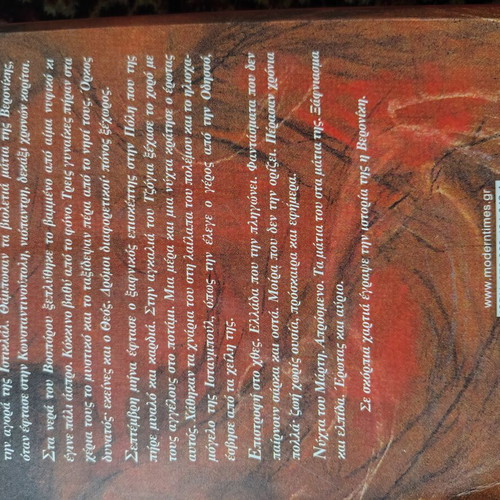 την αγορά της Ιστικλάλ. Θάμπωσαν τα βιολετιά μάτια της Βερονίκης,
όταν έφτασε στην Κωνσταντινούπολη, νιόπαντρη, δεκάξι χρονών κορίτσι.
Στα νερά του Βοσπόρου ξεπλύθηκε το βαμμένο από αίμα νυφικό κι
έγινε πάλι άσπρο. Κόκκινο βαθύ από το φόνο. Τρεις γυναίκες πήραν στα
χέρια τους το μυστικό και το ταξίδεψαν πέρα από το νησί τους. Όρκος
δυνατός· εκείνες και ο Θεός. Δρόμοι διαφορετικοί, πόνος ξέχωρος.
Σεπτέμβρη μήνα έφτασε ο ξαφνικός επισκέπτης στην Πόλη που της
πήρε μυαλό και καρδιά. Στην αγκαλιά του Τζόγια ξέχασε το χορό με
τους αγγέλους στο ποτάμι. Μια μέρα και μια νύχτα κράτησε ο έρωτας
αυτός. Χάθηκαν τα χνάρια του στη λαίλαπα του πολέμου και το ψλοχα-
μόγελο της Ισταμπούλ, όπως την έλεγε ο γέρος από την Οδησσό,
έσβησε από τα χείλη της.
Επιστροφή στο χθες. Ελλάδα που την πληγώνει. Φαντάσματα που δεν
παίρνουν σάρκα και οστά. Μοίρα που δεν την ορίζει. Πέρασαν χρόνια
πολλά· ζωή χωρίς οστά, πρόσκαιρα και εφήμερα.
Νύχτα του Μάρτη. Απρόσμενο. Τα μάτια του στα μάτια της. Ξάφνιασμα
και ελπίδα. Έρωτας και αύριο.
Σε σκόρπια χαρτιά έγραψε την ιστορία της η Βερονίκη.
www.moderntimes.gr